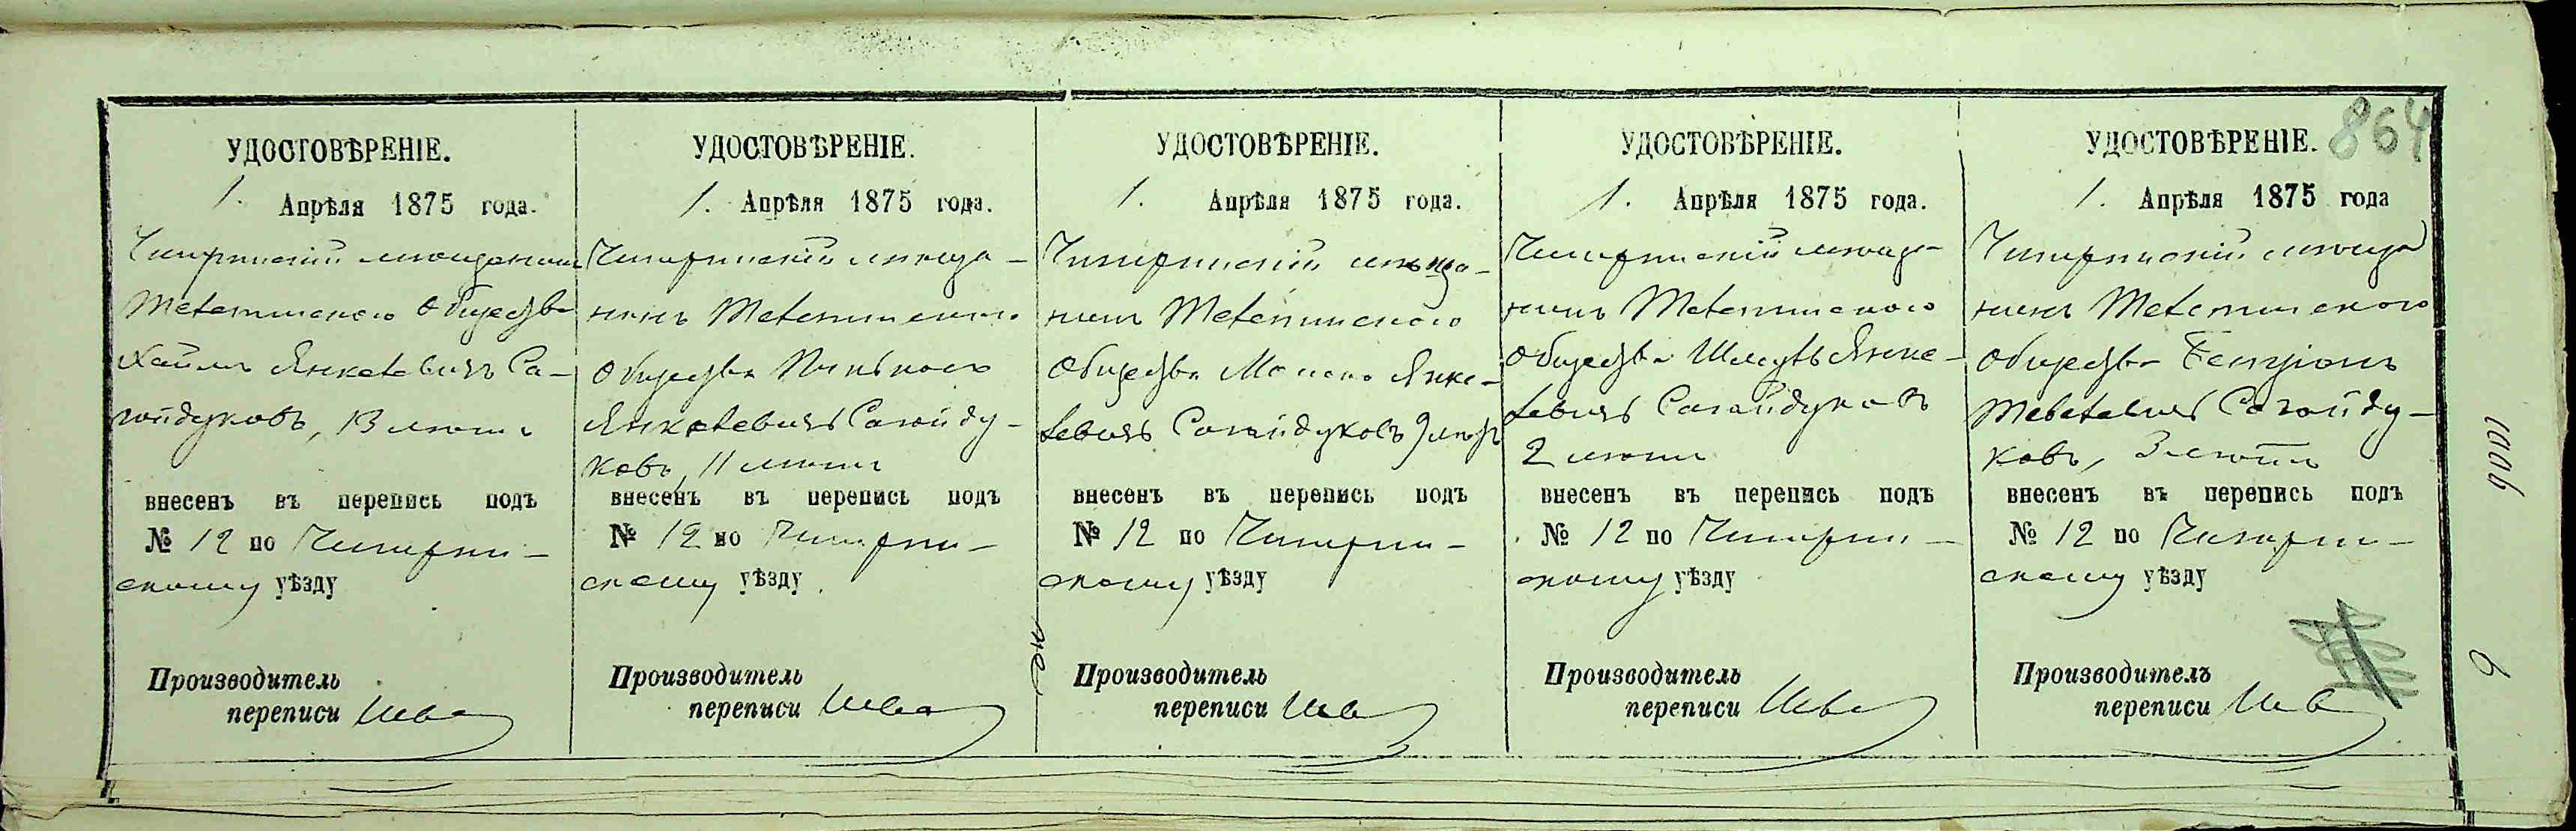 864
УДОСТОВѢРЕНІЕ.
1. Апрѣля 1875 года.
Чигиринскій мѣщанинъ
Общества
Хаимъ Янкелевичъ Са-
гайдуковъ, 13 лѣтъ
внесенъ въ перепись подъ
№ 12 по Чигирин-
скому уѣзду
Производитель
переписи
УДОСТОВѢРЕНІЕ.
1. Апрѣля 1875 года.
Чигиринскій мѣща-
нинъ
Общества
Янкелевичъ Сагайду-
ковъ, 11 лѣтъ
внесенъ въ перепись подъ
№ 12 по Чигирин-
скому уѣзду
Производитель
переписи
УДОСТОВѢРЕНІЕ.
1. Апрѣля 1875 года.
Чигиринскій мѣща-
нинъ
Общества Янке-
левичъ Сагайдуковъ 9 лѣтъ
внесенъ въ перепись подъ
№ 12 по Чигирин-
скому уѣзду
Производитель
переписи
УДОСТОВѢРЕНІЕ.
1. Апрѣля 1875 года.
Чигиринскій мѣща-
нинъ
Общества Янке-
левичъ Сагайдуковъ
2 лѣтъ
внесенъ въ перепись подъ
№ 12 по Чигирин-
скому уѣзду
Производитель
переписи
УДОСТОВѢРЕНІЕ.
1. Апрѣля 1875 года
Чигиринскій мѣща
нинъ
Общества
Сагайду-
ковъ, 3 лѣтъ
внесенъ въ перепись подъ
№ 12 по Чигирин-
скому уѣзду
Производитель
переписи